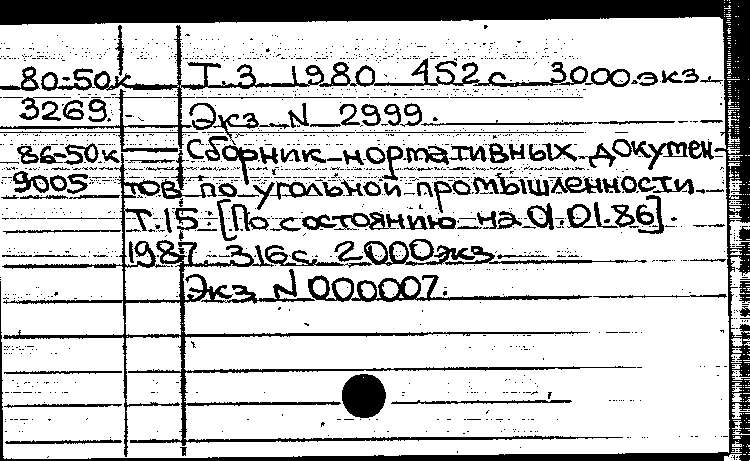 80-50к Т.3 1980 452 с. 3000 экз.
3269. Экз. N 2999.
86-50к — Сборник нормативных докумен-
9005 тов по угольной промышленности
Т.15: [По состоянию на 01.01.86].
1987. 316 с. 2000 экз.
Экз. N 000007.